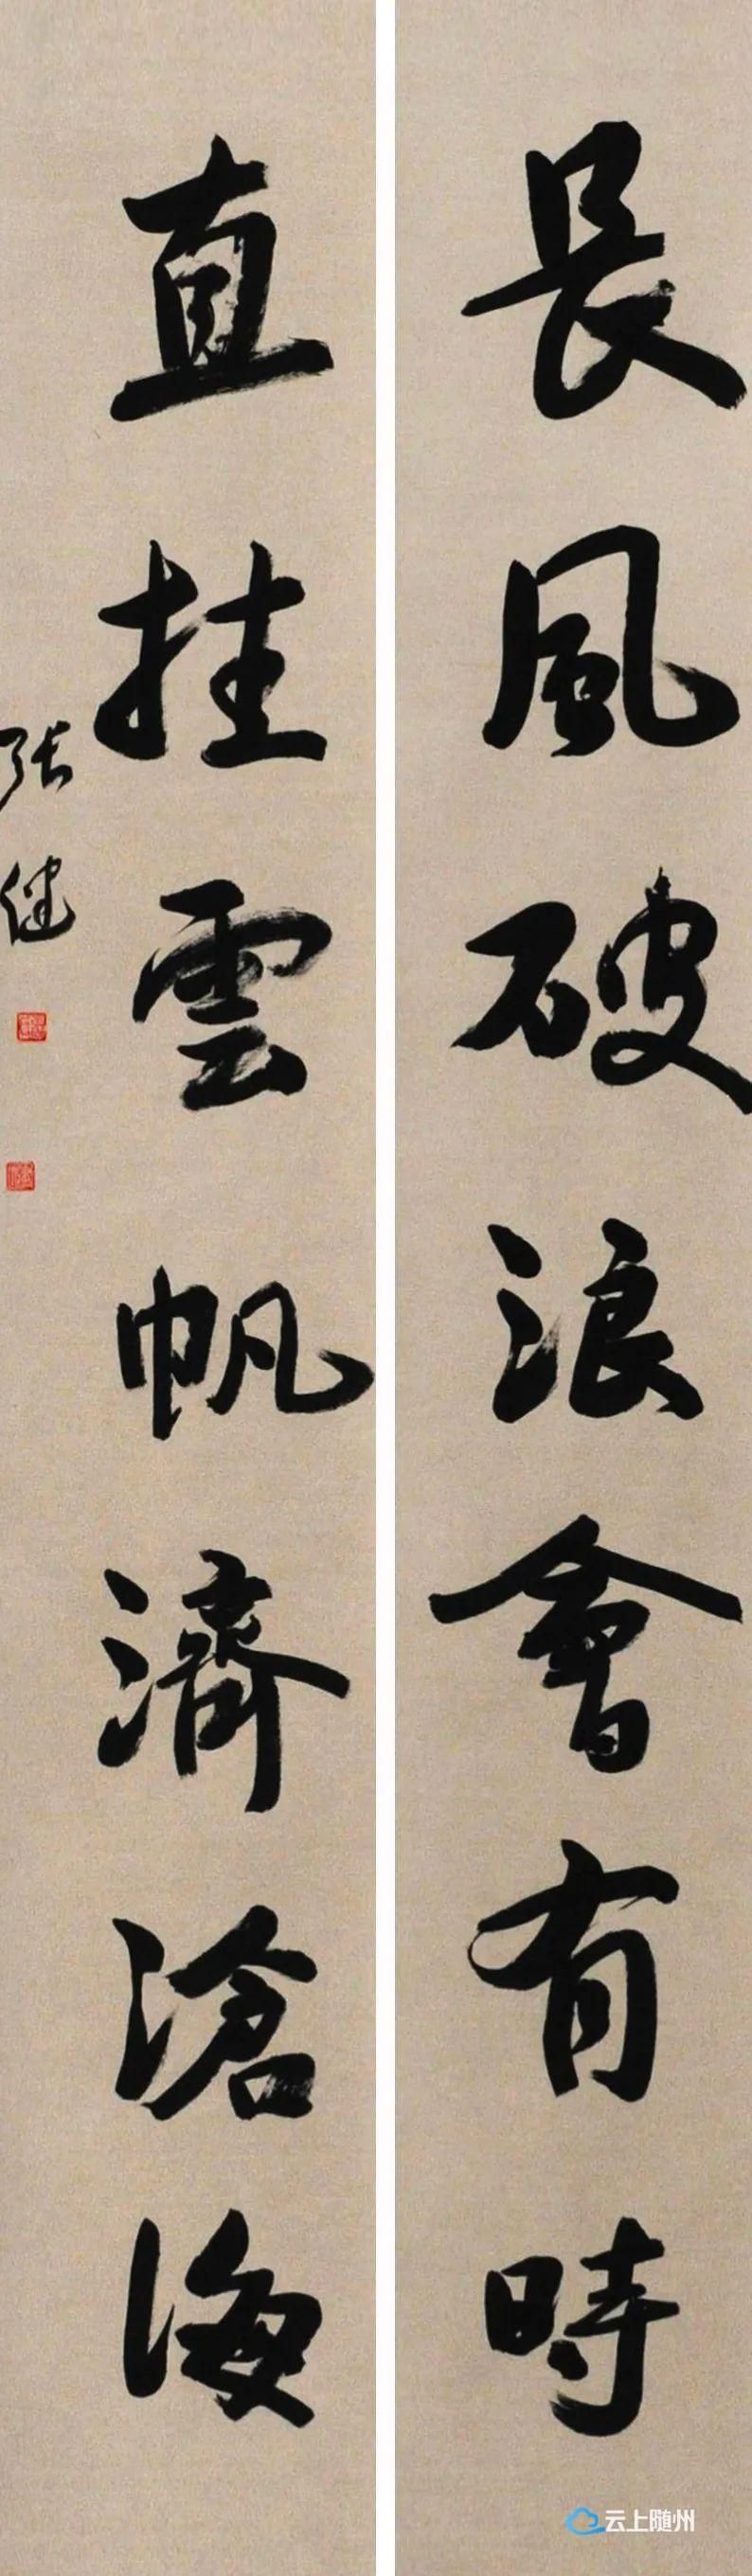 長風破浪會有時
直挂雲帆濟滄海
张健
云上随州